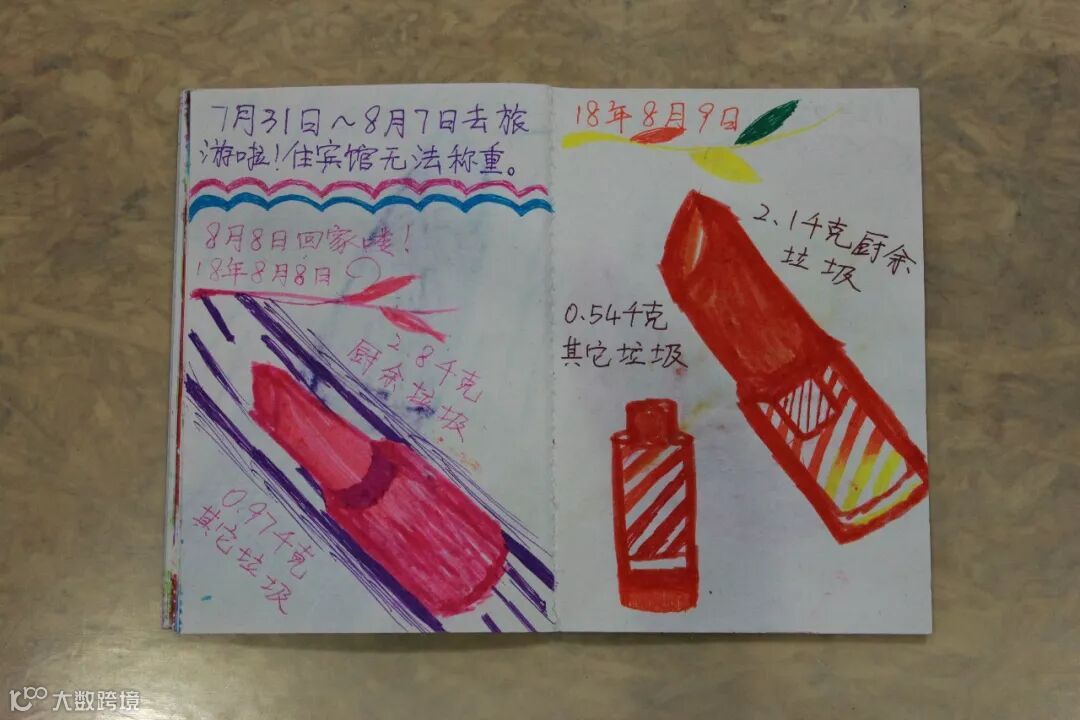 7月31日~8月7日去旅
游啦!住宾馆无法称重。
8月8日回家喽!
18年8月8日
2.8千克
厨余垃圾
0.97千克
其它垃圾
18年8月9日
2.1千克厨余
垃圾
0.54千克
其它垃圾
大数跨境